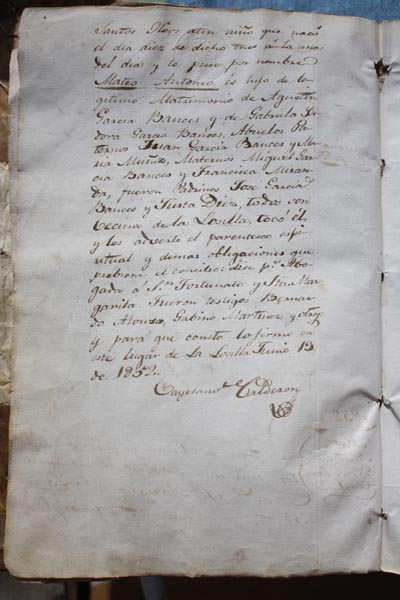 Santos Oleos a un niño que nació
el día diez de dicho mes a la una
del día y le puse por nombre
Mateo Antonio, es hijo de le
gitimo Matrimonio de Agustin
Garcia Bances y de Gabriela Ysi
dora Garcia Bances, Abuelos Pa
ternos Juan Garcia Bances y Ma
ria Muñiz, Maternos Miguel Gar
cia Bances y Francisca Miran
da, fueron Padrinos José Garcia
Bances y Justa Diez, todos son
vecinos de la Losilla, tocó el
y les advertí el parentesco espi
ritual y demas obligaciones que
prebiene el concilio: dice pr. Abo
gado a Sn. Fortunato y Sta. Mar
garita. Fueron testigos Bernar
do Alonso, Gabino Martinez y otros
y para que conste lo firmo en
este lugar de La Losilla Junio 13
de 1852.
Cayetano Calderon